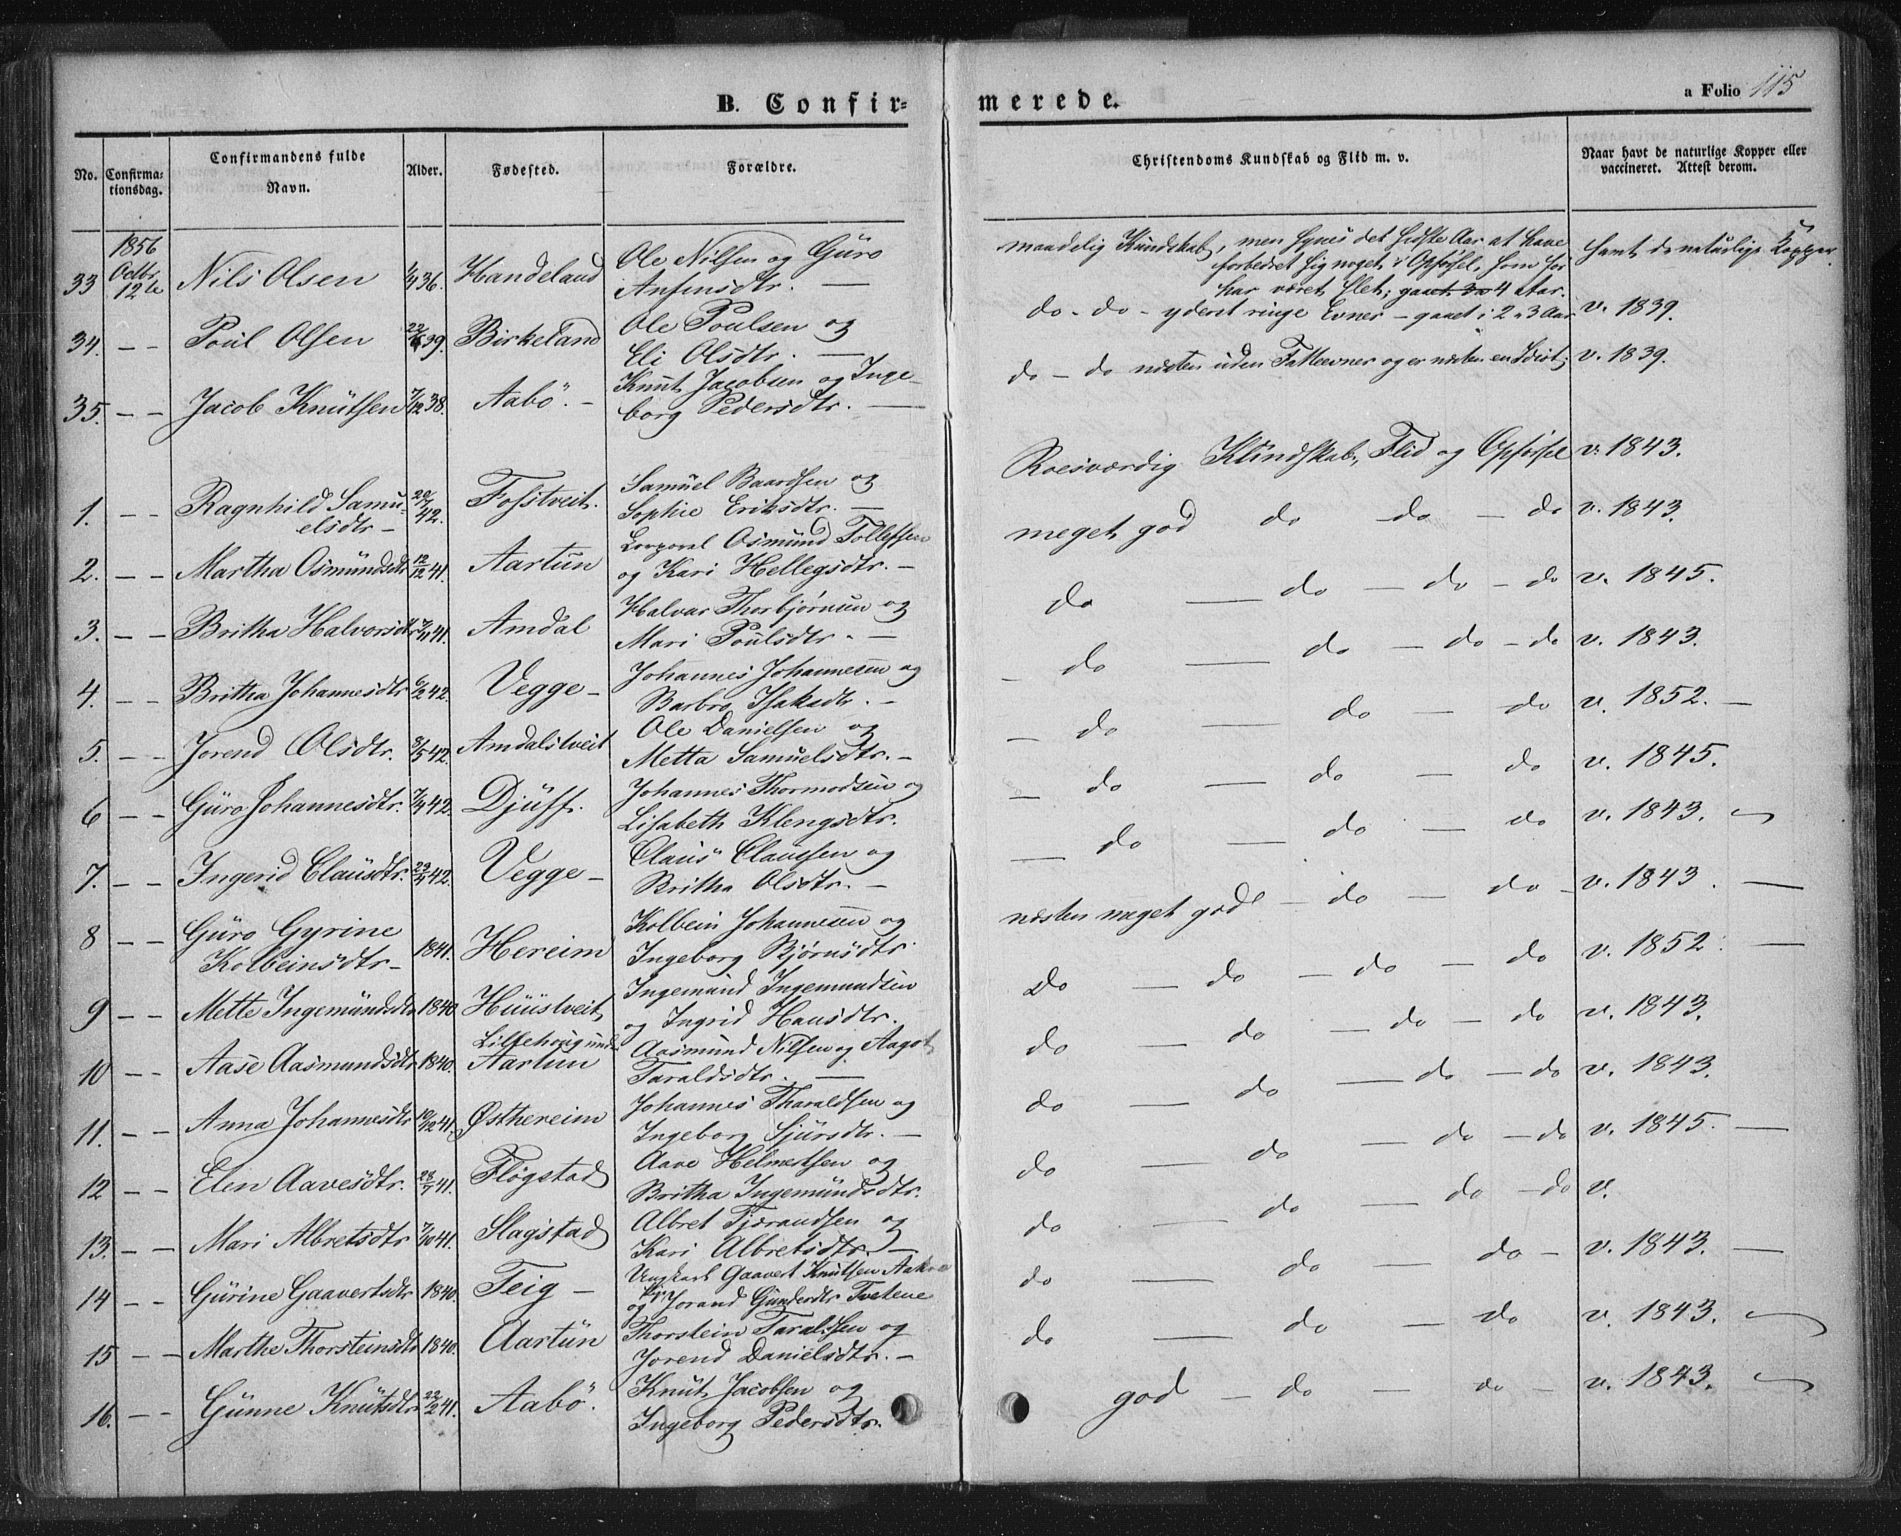 B. Confir=
merede.
a Folio 115
No.
Confirma=
tionsdag.
Confirmandens fulde
Navn.
Alder.
Fødested.
Forældre.
Christendoms Kundskab og Flid m. v.
Naar havt de naturlige Kopper eller
vaccineret. Attest derom.
1856
Octbr
12te
33 Nils Olsen 36. Handeland Ole Nilsen og Guro
Ansinsdtr. —
maadelig Kundskab, men synes det sidste Aar at have
forbedret sig noget i Opførsel, som før
har været slet; gaaet 4 Aar.
havt de naturlige Kopper.
34. — — Poul Olsen 39. Birkeland Ole Poulsen og
Eli Olsdtr. —
do - do - yderst ringe Evner - gaaet i 2 a 3 Aar v. 1839.
35. — — Jacob Knutsen 7/12 38. Aabö. — Knut Jacobsen og Inge-
borg Pedersdtr. —
do — do næsten uden Fatteevner og er næsten en Idiot; v. 1839.
1. — — Ragnhild Samu-
elsdtr — 20/7 42. Fosstveit. Samuel Baardsen og
Sophie Eriksdtr. —
Roesværdig Kundskab, Flid og Opførsel v. 1843.
2. — — Martha Osmundsdtr 12/12 41. Aartun Corporal Osmund Tollefsen
og Kari Hellegsdtr. —
meget god do do — do v. 1843.
3. — — Britha Halvorsdtr 41. Amdal Halvor Thorbjørnsen og
Mari Poulsdtr. —
do — do — do — do v. 1845.
4. — — Britha Johannesdtr 6/2 42. Vegge — Johannes Johannesen og
Barbro Isaksdtr. —
— do — do — do — do v. 1843.
5. — — Jorend Olsdtr. 8/5 42. Amdalstveit Ole Danielsen og
Metta Samuelsdtr. —
— do — do — do v. 1852. —
6 — — Guro Johannesdtr. 42. Djuff. Johannes Thormodsen og
Lisabeth Klengsdtr.
— do — do — do v. 1845.
7. — — Ingerid Clausdtr. 42. Vegge — Claus Clausen og
Britha Olsdtr. —
— do — do — do v. 1843. —
8 — — Guro Gyrine
Kolbeinsdtr — 1841. Hereim Kolbein Johannesen og
Ingeborg Bjørnsdtr
næsten meget god — do — do — v. 1843. —
9 — — Mette Ingemundsdtr 1840 Huustveit Ingemund Ingemundsen
og Ingrid Hansdtr.
Do — do — do — do v. 1852. —
10 — — Aase Aasmundsdtr 1840. Lillehoug under
Aartun Aasmund Nilsen og Aagot
Taraldsdtr. —
do — do — do — do v. 1843.
11. — — Anna Johannesdtr 19/12 41. Østhereim Johannes Tharaldsen og
Ingeborg Sjursdtr. —
do — do — do — do v. 1843.
12 — — Elen Aavesdtr. 23/7 41. Fløgstad Aave Helmertsen og
Britha Ingemundsdtr.
do — do — do — do v. 1845. —
13. — — Mari Albretsdtr 7/10 41. Slagstad Albret Tjerandsen og
Kari Albretsdtr. —
do — do — do — do v.
14 — — Gurine Gaavertsdtr 1840. Teig — Ungkarl Gaavert Knutsen
og Pige Jorand Gundersdtr Tvetene
do — do — do — v. 1843. —
15 — — Marthe Thorsteinsdtr 1840. Aartun Thorstein Taraldsen og
Jorend Danielsdtr. —
do — do — do v. 1843. —
16. — — Gunne Knutsdtr 22/2 41. Aabö. Knut Jacobsen og
Ingeborg Pedersdtr.
god — do — do — v. 1843. —